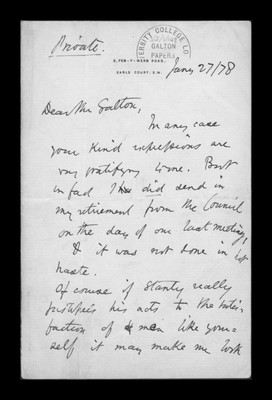 Private.
UNIVERSITY COLLEGE LO
GALTON
PAPERS
5, PEN-Y-WERN ROAD,
EARLS COURT, S.W.
Jany 27/78
Dear Mr Galton,
In any case
your kind expressions are
very gratifying to me. But
in fact I did send in
my retirement from the Council
on the day of our last meeting,
& it was not done in hot
haste.
Of course if Stanley really
justifies his acts to the satis-
faction of men like your-
self it may make me look